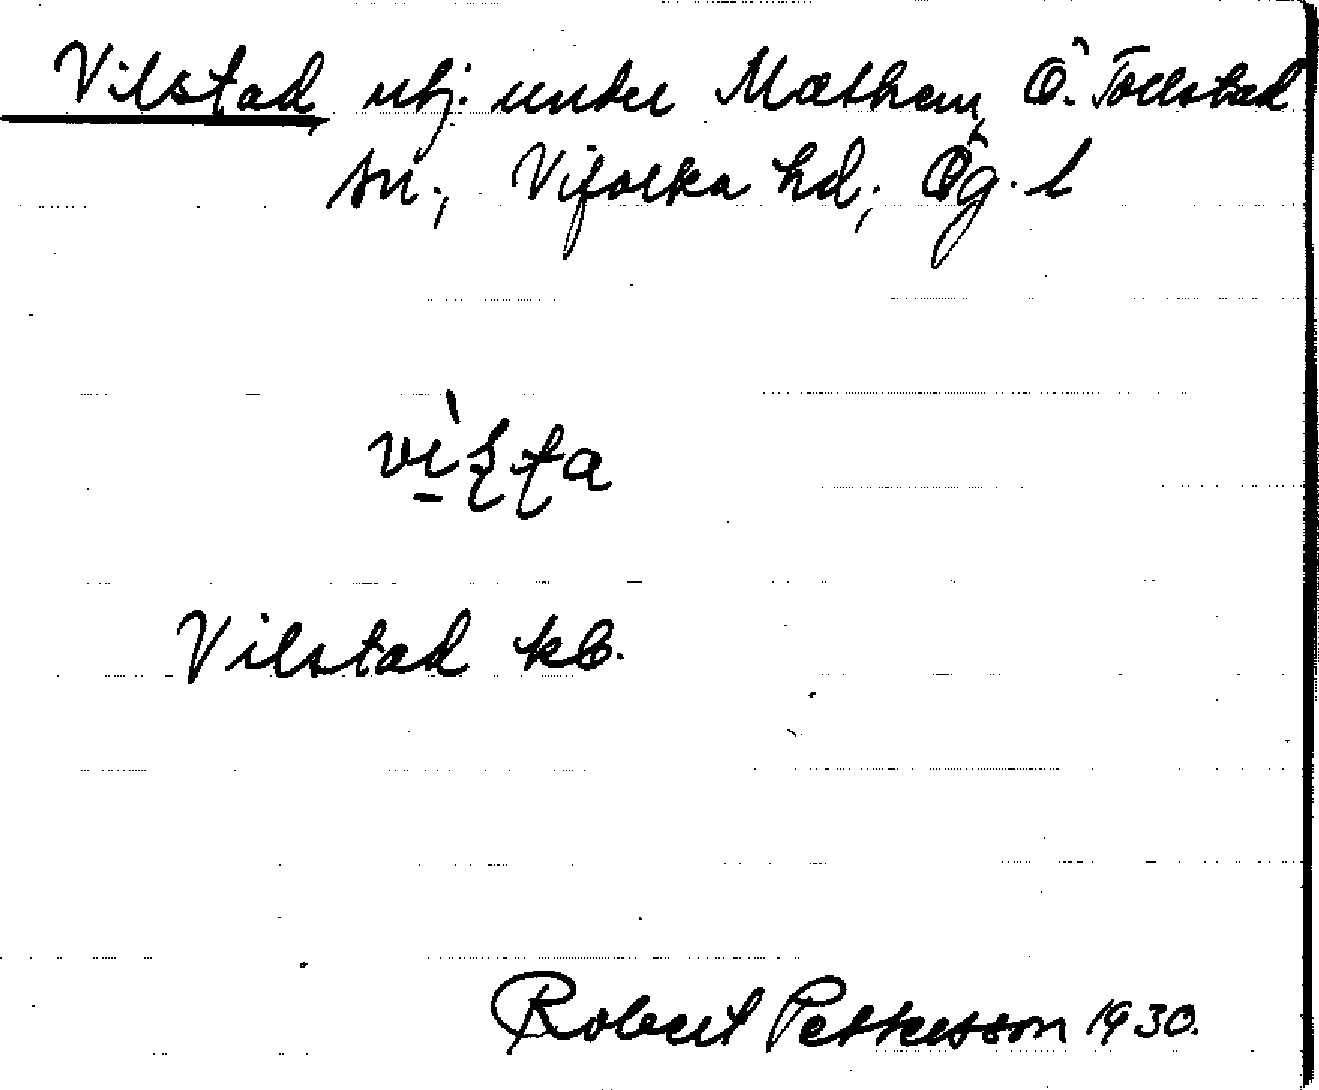 Vilstad, utj. under Mathem, Ö. Tollstad
sn., Vifolka hd., Ög. l
Vilstad kb.
Robert Pettersson 1930.